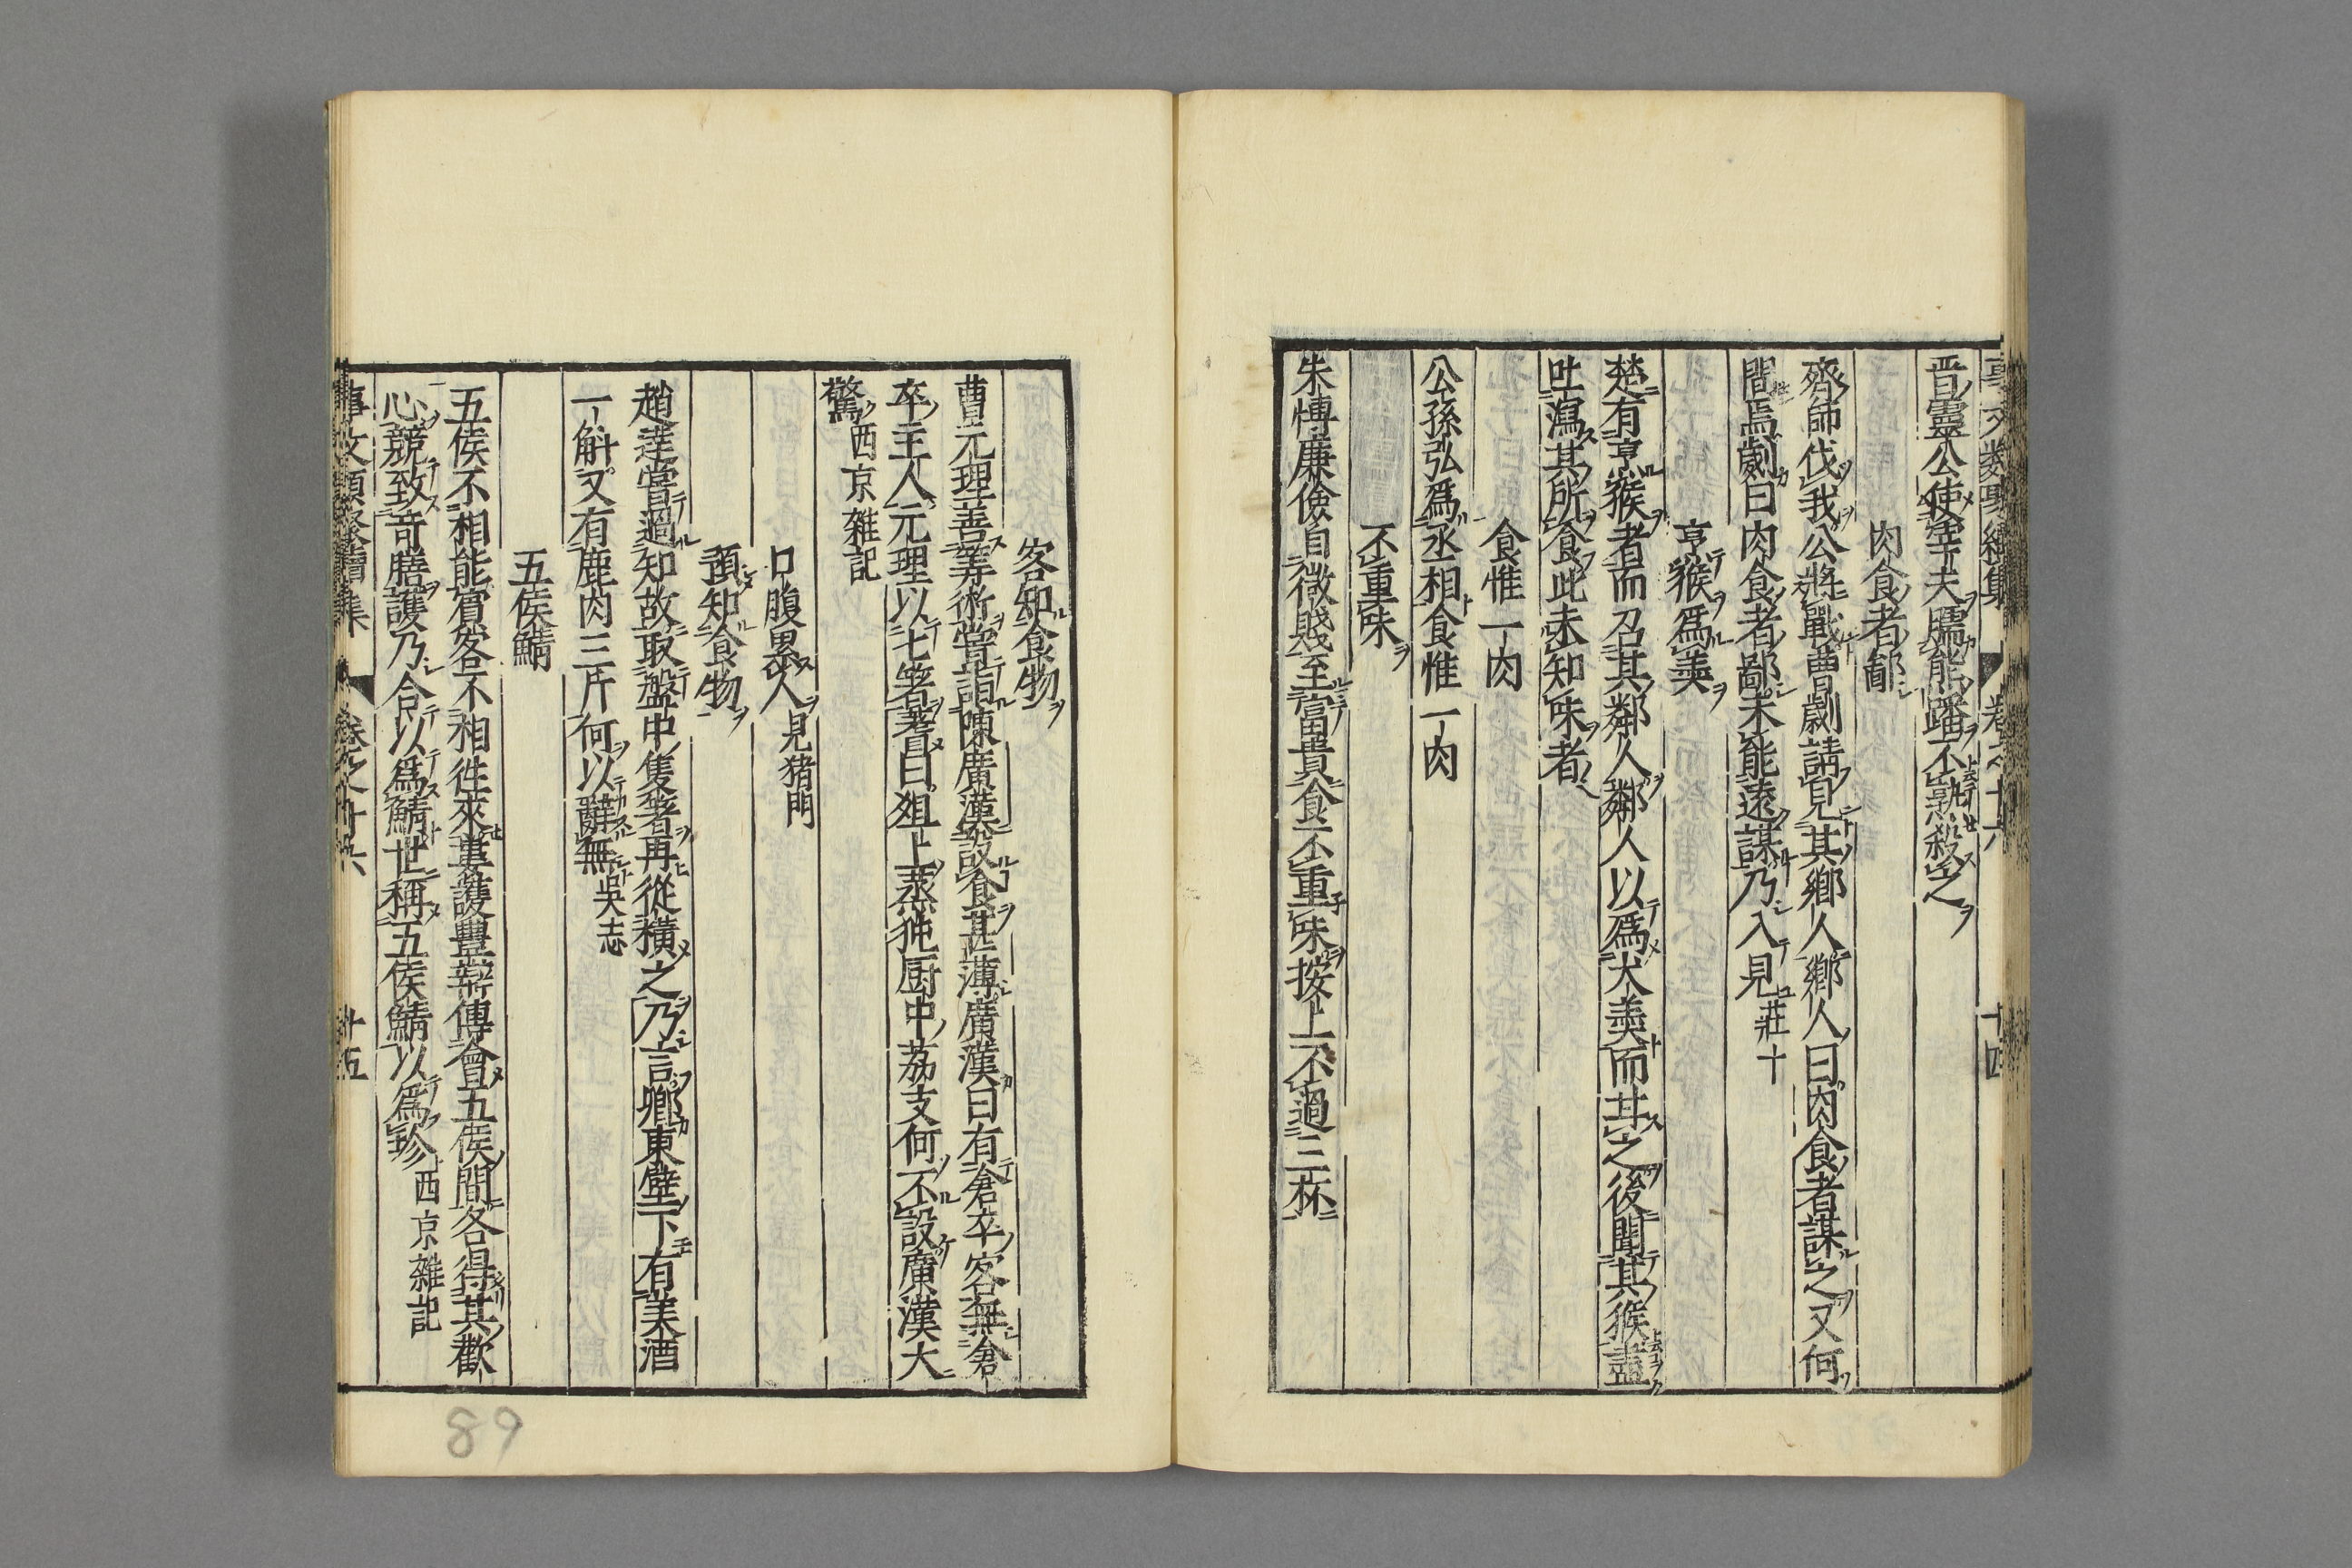 晋靈公使宰夫臑熊蹯不熟殺之
肉食者鄙
齊師伐我公將戰曹劌請見其鄉人鄉人曰肉食者謀之又何
間焉劌曰肉食者鄙未能遠謀乃入見莊十
亨猴爲羮
楚有亨猴者而召其鄰人鄰人以爲犬羮而甘之後聞其猴盡
吐瀉其所食此未知味者
食惟一肉
公孫弘爲丞相食惟一肉
不重味
朱博廉儉自微賤至富貴食不重味按上不過三杯
客知食物
曹元理善筭術嘗詣陳廣漢設食甚薄廣漢曰有倉卒客無倉
卒主人元理以七筯蓍曰俎上蒸㹠厨中茘支何不設廣漢大
驚西京雜記
口腹累人見猪門
預知食物
趙達嘗過知故取盤中隻筯再從橫之乃言鄉東壁下有美酒
一斛又有鹿肉三斤何以辭無吳志
五侯鯖
五侯不相能賔客不相徃來婁護豐辯傳會五侯間各得其歡
心競致竒膳護乃合以爲鯖世稱五侯鯖以爲珍西京雜記
事文類聚續集 卷之十六 十五
89